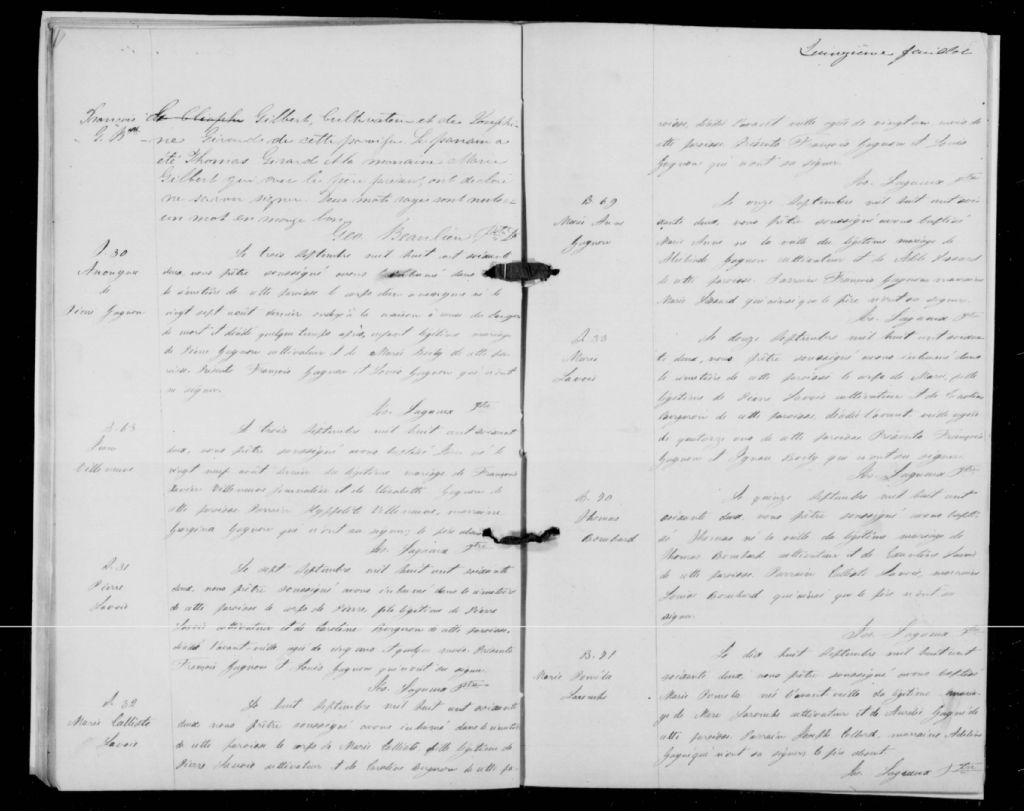 François
G. Bte
de Cléophe Gilbert, Cultivateur et de Joseph-
ine Girard de cette paroisse. Le parrain a
été Thomas Girard et la marraine Marie
Gilbert qui avec le père présent, ont déclaré
ne savoir signer. Deux mots rayés sont nuls
un mot en marge bon
Geo. Beaulieu Ptre
S. 30
Anonyme
de
Pierre Gagnon
Le trois Septembre mil huit cent soixante
deux, nous prêtre soussigné avons inhumé dans
le cimetière de cette paroisse le corps d'un anonyme né le
vingt sept août dernier ondoyé à la maison à cause du danger
de mort et décédé quelque temps après, enfant légitime mariage
de Pierre Gagnon cultivateur et de Marie Boily de cette pa-
roisse. Présents François Gagnon et Louis Gagnon qui n'ont
su signer.
Jos. Lagueux Ptre
B. 68
Villeneuve
Le trois Septembre mil huit cent soixante
deux, nous prêtre soussigné avons baptisé né le
vingt neuf août dernier du légitime mariage de François
Xavier Villeneuve journalier et de Elizabeth Gagnon de
cette paroisse Parrain Hyppolite Villeneuve, marraine
Georgina Gagnon qui n'ont su signer; le père absent
Jos. Lagueux Ptre
S. 31
Pierre
Savoie
Le sept Septembre mil huit cent soixante
deux, nous prêtre soussigné avons inhumé dans le cimetière
de cette paroisse le corps de Pierre, fils légitime de Pierre
Savoie cultivateur et de Caroline Bergeron de cette paroisse,
décédé l'avant-veille agé de cinq ans et quelques mois. Présents
François Gagnon et Louis Gagnon qui n'ont su signer.
Jos. Lagueux Ptre
S. 32
Marie Calliste
Savoie
Le huit Septembre mil huit cent soixante
deux nous prêtre soussigné avons inhumé dans le cimetière
de cette paroisse le corps de Marie Calliste fille légitime de
Pierre Savoie cultivateur et de Caroline Bergeron de cette pa-
feuillet
roisse, décédé l'avant veille agée de vingt un mois de
cette paroisse Présents François Gagnon et Louis
Gagnon qui n'ont su signer.
Jos. Lagueux Ptre
B. 69
Marie Anne
Gagnon
Le onze Septembre mil huit cent soi-
xante deux, nous prêtre soussigné avons baptisé
Marie Anne née la veille du légitime mariage de
Gagnon cultivateur et de
de cette paroisse. Parrain François Gagnon marraine
Marie qui ainsi que le père n'ont su signer.
Jos. Lagueux Ptre
S. 33
Marie
Savoie
Le douze Septembre mil huit cent soixan-
te deux, nous prêtre soussigné avons inhumé dans
le cimetière de cette paroisse le corps de Marie, fille
légitime de Pierre Savoie cultivateur et de Caroline
Bergeron de cette paroisse, décédé l'avant veille agée
de quatorze ans de cette paroisse Présents François
Gagnon et Ignace Boily qui n'ont su signer.
Jos. Lagueux Ptre
B. 70
Thomas
Bouchard
Le quinze Septembre mil huit cent
soixante deux, nous prêtre soussigné avons bapti-
sé Thomas né la veille du légitime mariage de
Thomas Bouchard cultivateur et de Savoie
de cette paroisse. Parrain Calliste Savoie, marraine
Louise Bouchard qui ainsi que le père n'ont su
signer.
Jos. Lagueux Ptre
B. 71
Marie Paméla
Le dix huit Septembre mil huit cent
soixante deux, nous prêtre soussigné avons baptisé
Marie Paméla née l'avant veille du légitime maria-
ge de Marc cultivateur et de Aurélie Gagné de
cette paroisse. Parrain Joseph Collard, marraine Adeline
Gagné qui n'ont su signer le père absent.
Jos. Lagueux Ptre